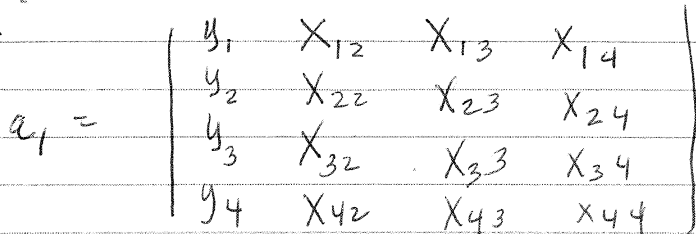 y₁ X₁₂ X₁₃ X₁₄
y₂ X₂₂ X₂₃ X₂₄
a₁ =
y₃ X₃₂ X₃₃ X₃₄
y₄ X₄₂ X₄₃ X₄₄